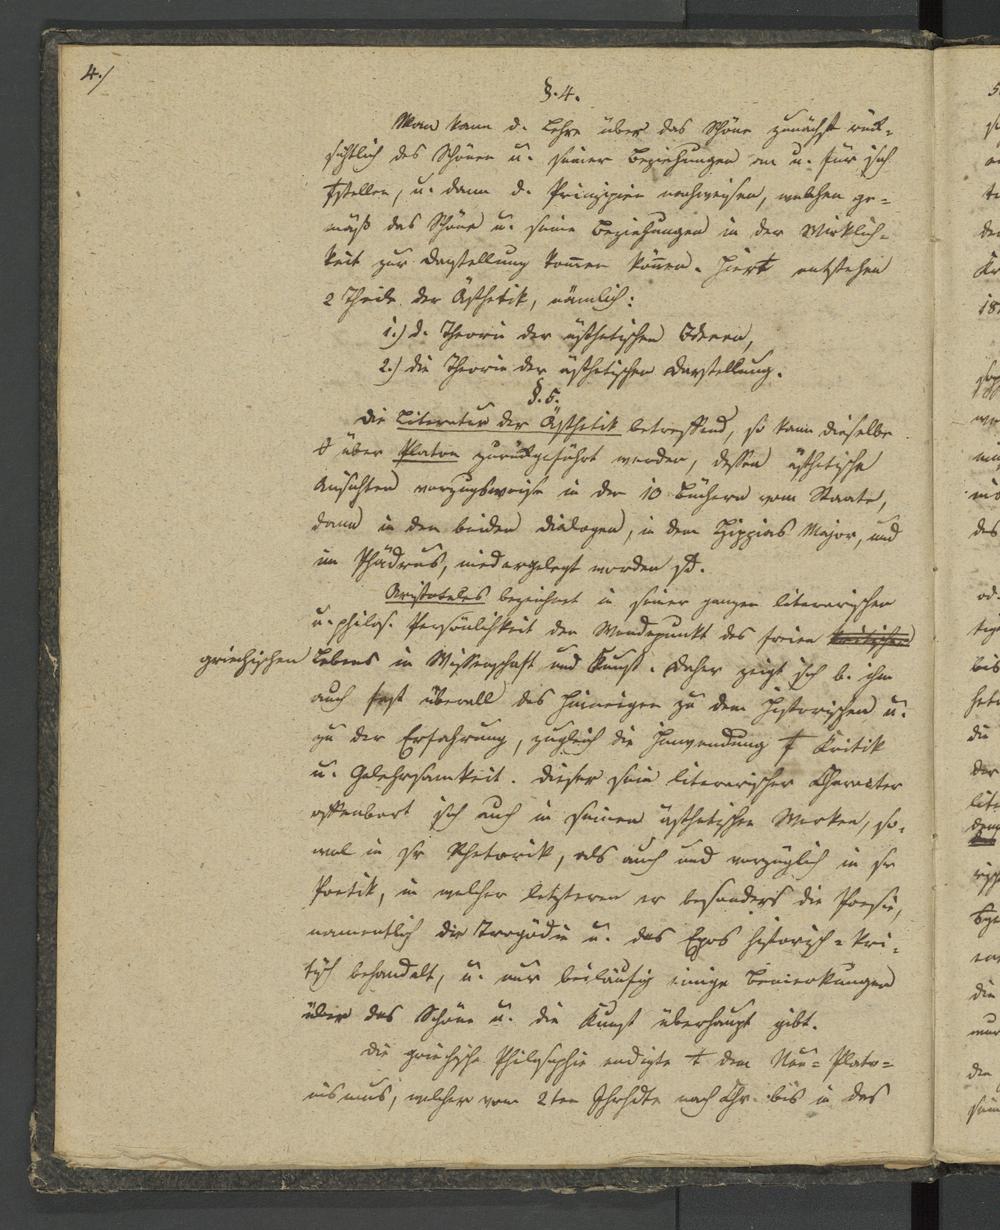 4./
§. 4.
Man kann d. Lehre über das Schöne zunächst rück-
sichtlich des Schönen u. seiner Beziehungen an u. für sich
stellen, u. dann d. Prinzipien nachweisen, welchen ge-
mäß das Schöne u. seine Beziehungen in der Wirklich-
keit zur Darstellung kom̅en kön̅en. entstehen
2 Theile der Ästhetik, nämlich:
1.) d. Theorie der ästhetischen Ideen,
2.) die Theorie der ästhetischen Darstellung.
§. 5.
Die Literatur der Ästhetik betreffend, so kann dieselbe
über Platon zurückgeführt werden, dessen ästhetische
Ansichten vorzugsweise in den 10 Büchern vom Staate,
dann in den beiden Dialogen, in dem Hippias Major, und
im Phädrus, niedergelegt worden sd.
Aristoteles bezeichnet in seiner ganzen literarischen
u. philos. Persönlichkeit den Wendepunkt des freien
griechischen Lebens in Wissenschaft und Kunst. Daher zeigt sich b. ihm
auch fast überall das Hinneigen zu dem Historischen u.
zu der Erfahrung, zugleich die Hinwendung Kritik
u. Gelehrsamkeit. Dieser sein literarischer Character
offenbart sich auch in seinen ästhetischen Werken, so-
wol in sr Rhetorik, als auch und vorzüglich in sr
Poetik, in welcher letzteren er besonders die Poesie,
namentlich die Tragödie u. das Epos historisch-kri-
tisch behandelt, u. nur beiläufig einige Bemerkungen
über das Schöne u. die Kunst überhaupt gibt.
Die griechische Philosophie endigte dem Neu-Plato-
nismus, welcher vom 2ten Jhrhdte nach Chr. bis in das